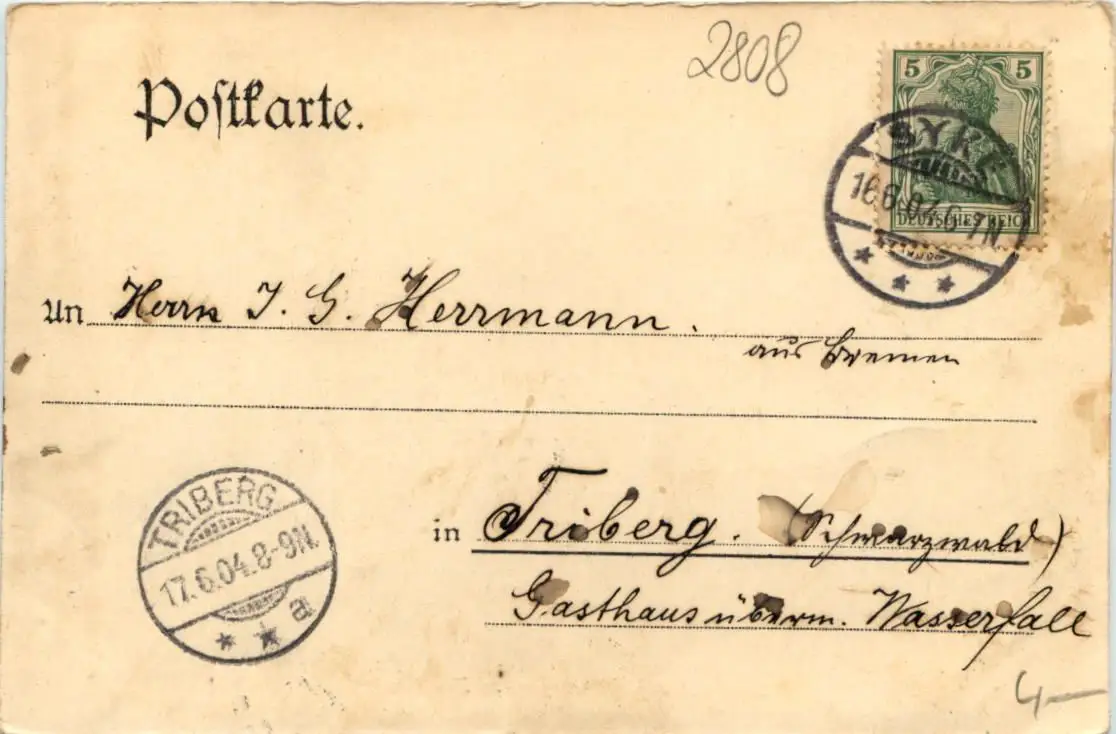 2808
Postkarte.
5 5
DEUTSCHES REICH
SYKE
16.6.04.6-7N
An Herrn J. G. Herrmann.
aus Bremen
TRIBERG
17.6.04.8-9N.
a
in Triberg. (Schwarzwald)
Gasthaus überm. Wasserfall
4—